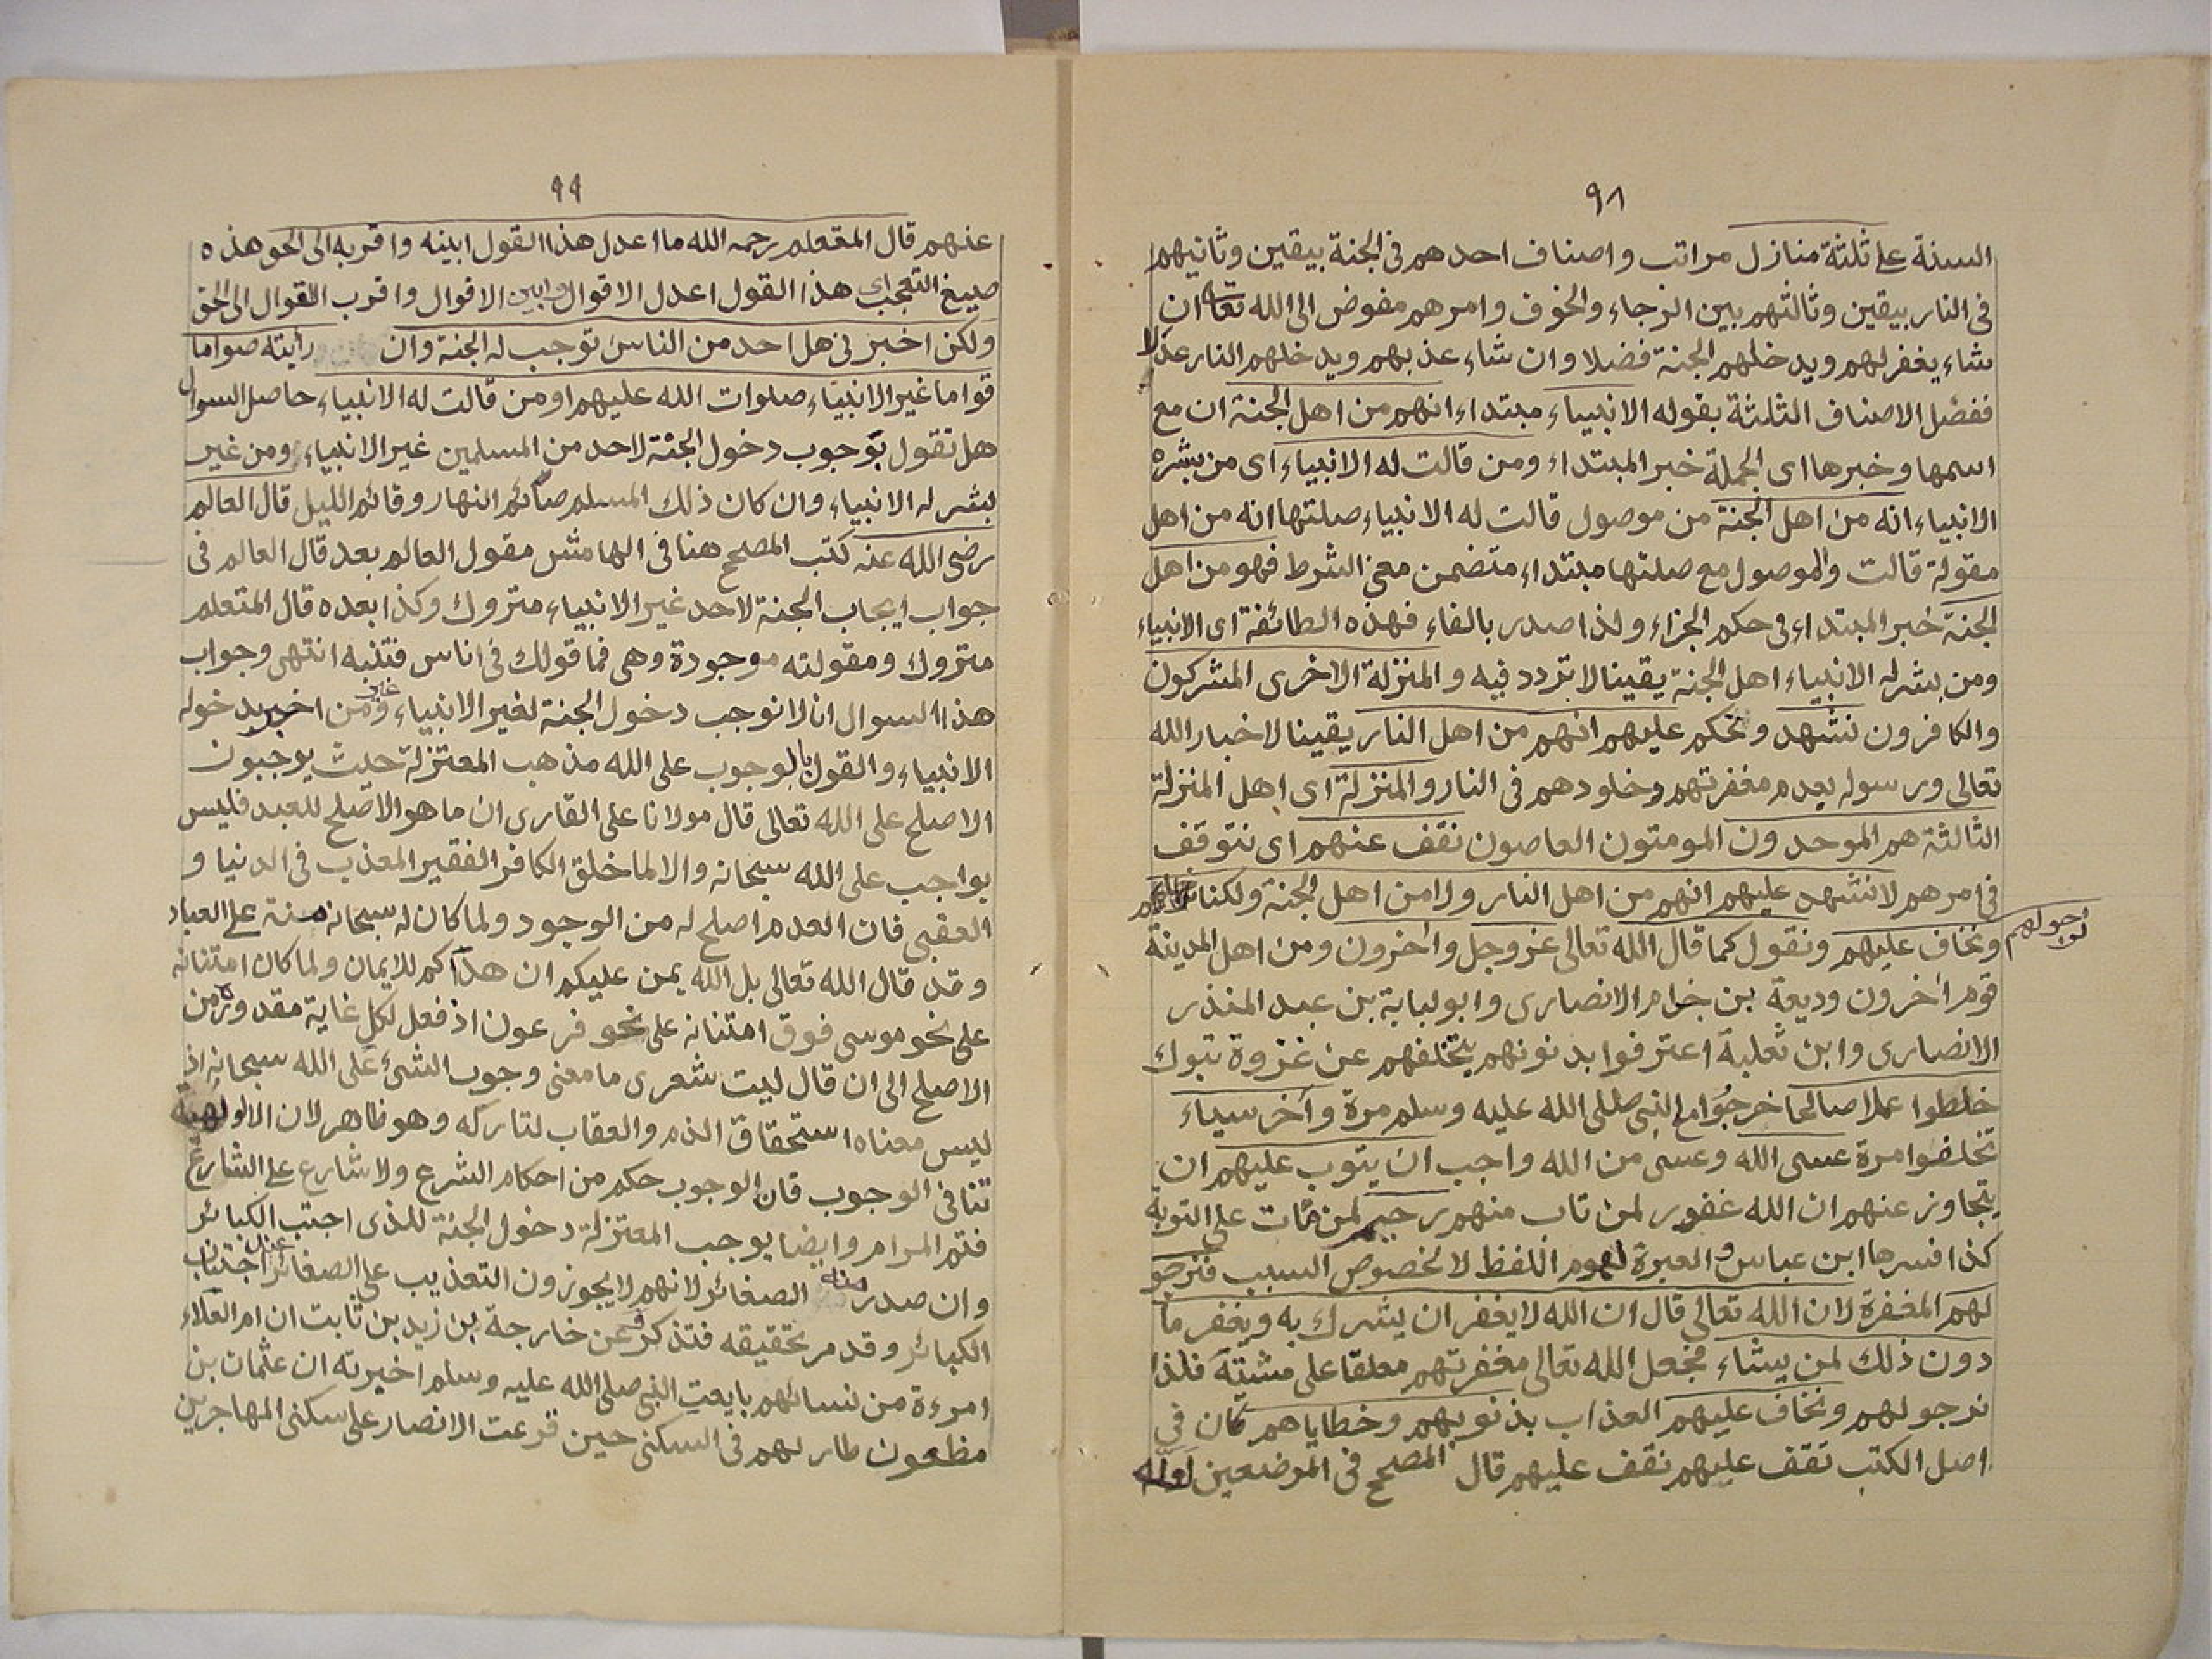 ٩٨
السنة على ثلثة منازل مراتب واصناف احدهم فى الجنة بيقين وثانيهم
فى النار بيقين وثالثهم بين الرجاء والخوف وامرهم مفوض الى الله تعا ان
شاء يغفر لهم ويدخلهم الجنة فضلا وان شاء عذبهم ويدخلهم النار عدلا
ففصل الاصناف الثلثة بقوله الانبياء مبتداء انهم من اهل الجنة ان مع
اسمها وخبرها اى الجملة خبر المبتداء ومن قالت له الانبياء اى من بشره
الانبياء انه من اهل الجنة من موصول قالت له الانبياء صلتها انه من اهل
مقولة قالت والموصول مع صلتها مبتداء متضمن معنى الشرط فهو من اهل
الجنة خبر المبتداء فى حكم الجزاء ولذا صدر بالفاء فهذه الطائفة اى الانبياء
ومن بشر له الانبياء اهل الجنة يقينا لا تردد فيه والمنزلة الاخرى المشركون
والكافرون نشهد ونحكم عليهم انهم من اهل النار يقينا لاخبار الله
تعالى ورسوله بعدم مغفرتهم وخلودهم فى النار والمنزلة اى اهل المنزلة
الثالثة هم الموحدون المومنون العاصون نقف عنهم اى نتوقف
فى امرهم لا نشهد عليهم انهم من اهل النار ولا من اهل الجنة ولكنا
نرجو لهم
ونخاف عليهم ونقول كما قال الله تعالى عز وجل وآخرون ومن اهل المدينة
قوم آخرون وديعة بن خدام الانصارى وابو لبابة بن عبد المنذر
الانصارى وابن ثعلبة اعترفوا بذنوبهم بتخلفهم عن غزوة تبوك
خلطوا عملا صالحا خرجوا مع النبى صلى الله عليه وسلم مرة وآخر سياء
تخلفوا مرة عسى الله وعسى من الله واجب ان يتوب عليهم ان
يتجاوز عنهم ان الله غفور لمن تاب منهم رحيم لمن مات على التوبة
كذا فسرها ابن عباس والعبرة لعموم اللفظ لا لخصوص السبب فنرجو
لهم المغفرة لان الله تعالى قال ان الله لا يغفر ان يشرك به ويغفر ما
دون ذلك لمن يشاء فجعل الله تعالى مغفرتهم معلقا على مشيته فلذا
نرجو لهم ونخاف عليهم العذاب بذنوبهم وخطاياهم كان فى
اصل الكتب تقف عليهم نقف عليهم قال المصحح فى الموضعين لعله
٩٩
عنهم قال المتعلم رحمه الله ما اعدل هذا القول ابينه واقربه الى الحق هذه
صيغ التعجب اى هذا القول اعدل الاقوال وابين الاقوال واقرب القوال الى الحق
ولكن اخبرنى هل احد من الناس توجب له الجنة وان رأيته صواما
قواما غير الانبياء صلوات الله عليهم او من قالت له الانبياء حاصل السوال
هل تقول بوجوب دخول الجنة لاحد من المسلمين غير الانبياء ومن غير
بشر له الانبياء وان كان ذلك المسلم صائم النهار وقائم الليل قال العالم
رضى الله عنه كتب المصحح هنا فى الهامش مقول العالم بعد قال العالم فى
جواب ايجاب الجنة لاحد غير الانبياء متروك وكذا بعده قال المتعلم
متروك ومقولته موجودة وهى فما قولك فى اناس فتنبه انتهى وجواب
هذا السوال انا لا نوجب دخول الجنة لغير الانبياء وغير من اخبر بدخوله
الانبياء والقول بالوجوب على الله مذهب المعتزلة حيث يوجبون
الاصلح على الله تعالى قال مولانا على القارى ان ما هو الاصلح للعبد فليس
بواجب على الله سبحانه والا لما خلق الكافر الفقير المعذب فى الدنيا و
العقبى فان العدم اصلح له من الوجود ولما كان له سبحانه منة على العباد
وقد قال الله تعالى بل الله يمن عليكم ان هداكم للايمان ولما كان امتنانه
على نحو موسى فوق امتنانه على نحو فرعون اذ فعل لكل غاية مقدوره من
الاصلح الى ان قال ليت شعرى ما معنى وجوب الشئ على الله سبحانه اذ
ليس معناه استحقاق الذم والعقاب لتاركه وهو ظاهر لان الالوهية
تنافى الوجوب فان الوجوب حكم من احكام الشرع ولا شارع على الشارع
فتم المرام وايضا يوجب المعتزلة دخول الجنة للذى اجتنب الكبائر
وان صدر منه الصغائر لانهم لا يجوزون التعذيب على الصغائر عند اجتناب
الكبائر وقد مر تحقيقه فتذكر وعن خارجة بن زيد بن ثابت ان ام العلاء
امرءة من نسائهم بايعت النبى صلى الله عليه وسلم اخبرته ان عثمان بن
مظعون طار لهم فى السكنى حين قرعت الانصار على سكنى المهاجرين